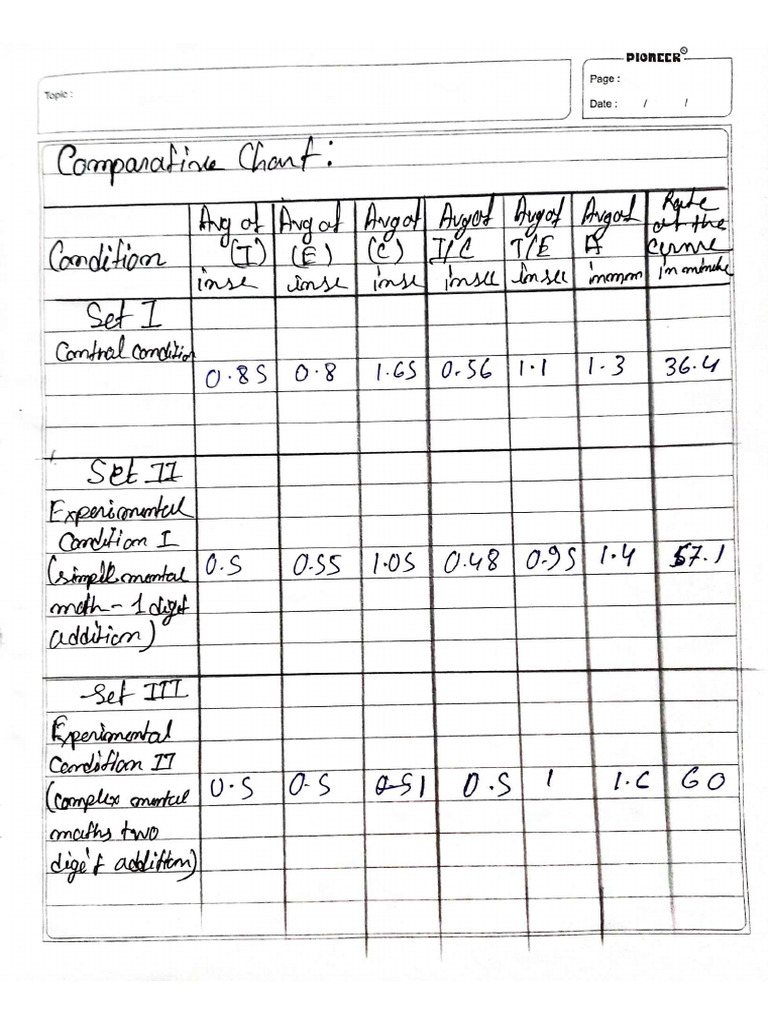 PIONEER®
Topic :
Page :
Date : / /
Comparative Chart :
Condition | Avg of (I) in sec | Avg of (E) in sec | Avg of (C) in sec | Avg of I/C in sec | Avg of I/E in sec | Avg of A in mm | Rate of the curve in minute
Set I
Control condition
0.85 0.8 1.65 0.56 1.1 1.3 36.4
Set II
Experimental
Condition I
(simple mental 0.5 0.55 1.05 0.48 0.95 1.4 57.1
math - 1 digit
addition)
Set III
Experimental
Condition II
(complex mental 0.5 0.5 1 0.5 1 1.6 60
maths two
digit addition)